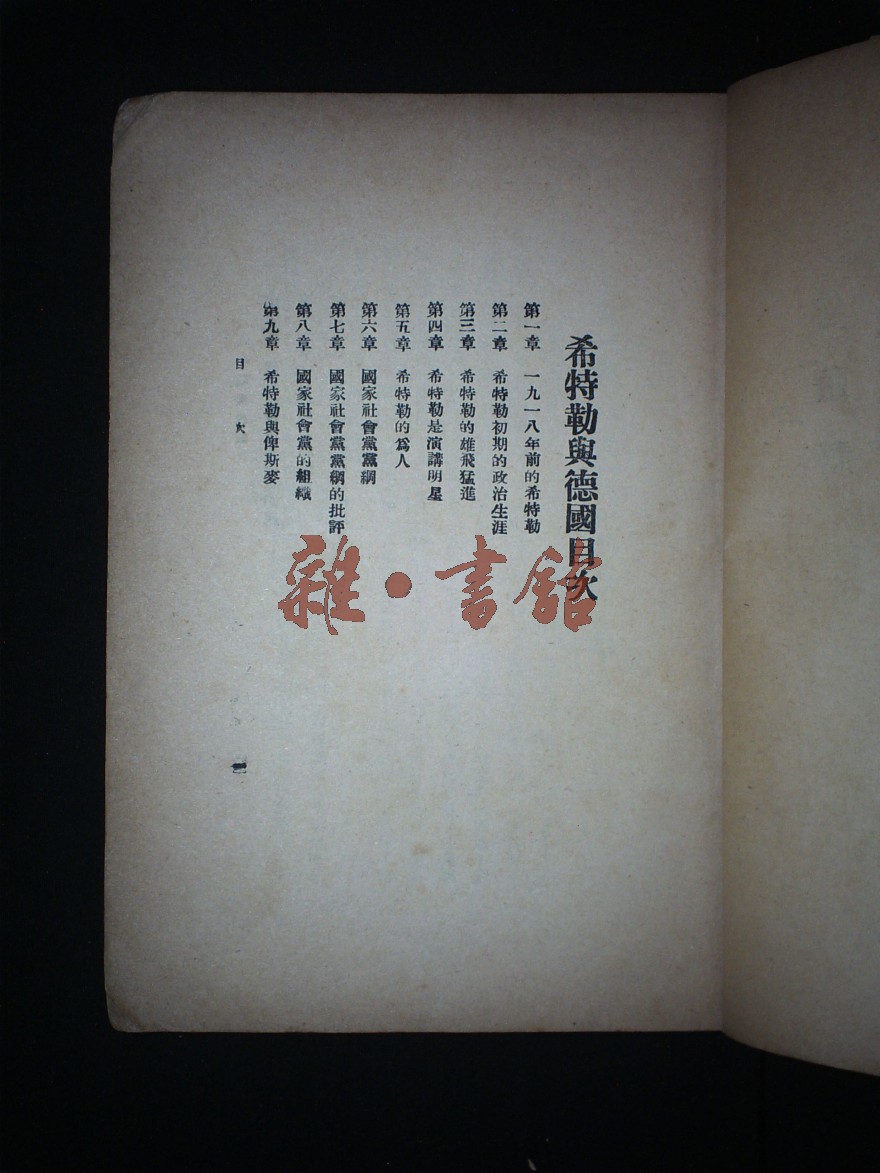 希特勒與德國目次
第一章　一九一八年前的希特勒
第二章　希特勒初期的政治生涯
第三章　希特勒的雄飛猛進
第四章　希特勒是演講明星
第五章　希特勒的爲人
第六章　國家社會黨黨綱
第七章　國家社會黨黨綱的批評
第八章　國家社會黨的組織
第九章　希特勒與俾斯麥
目　次
雜·書館